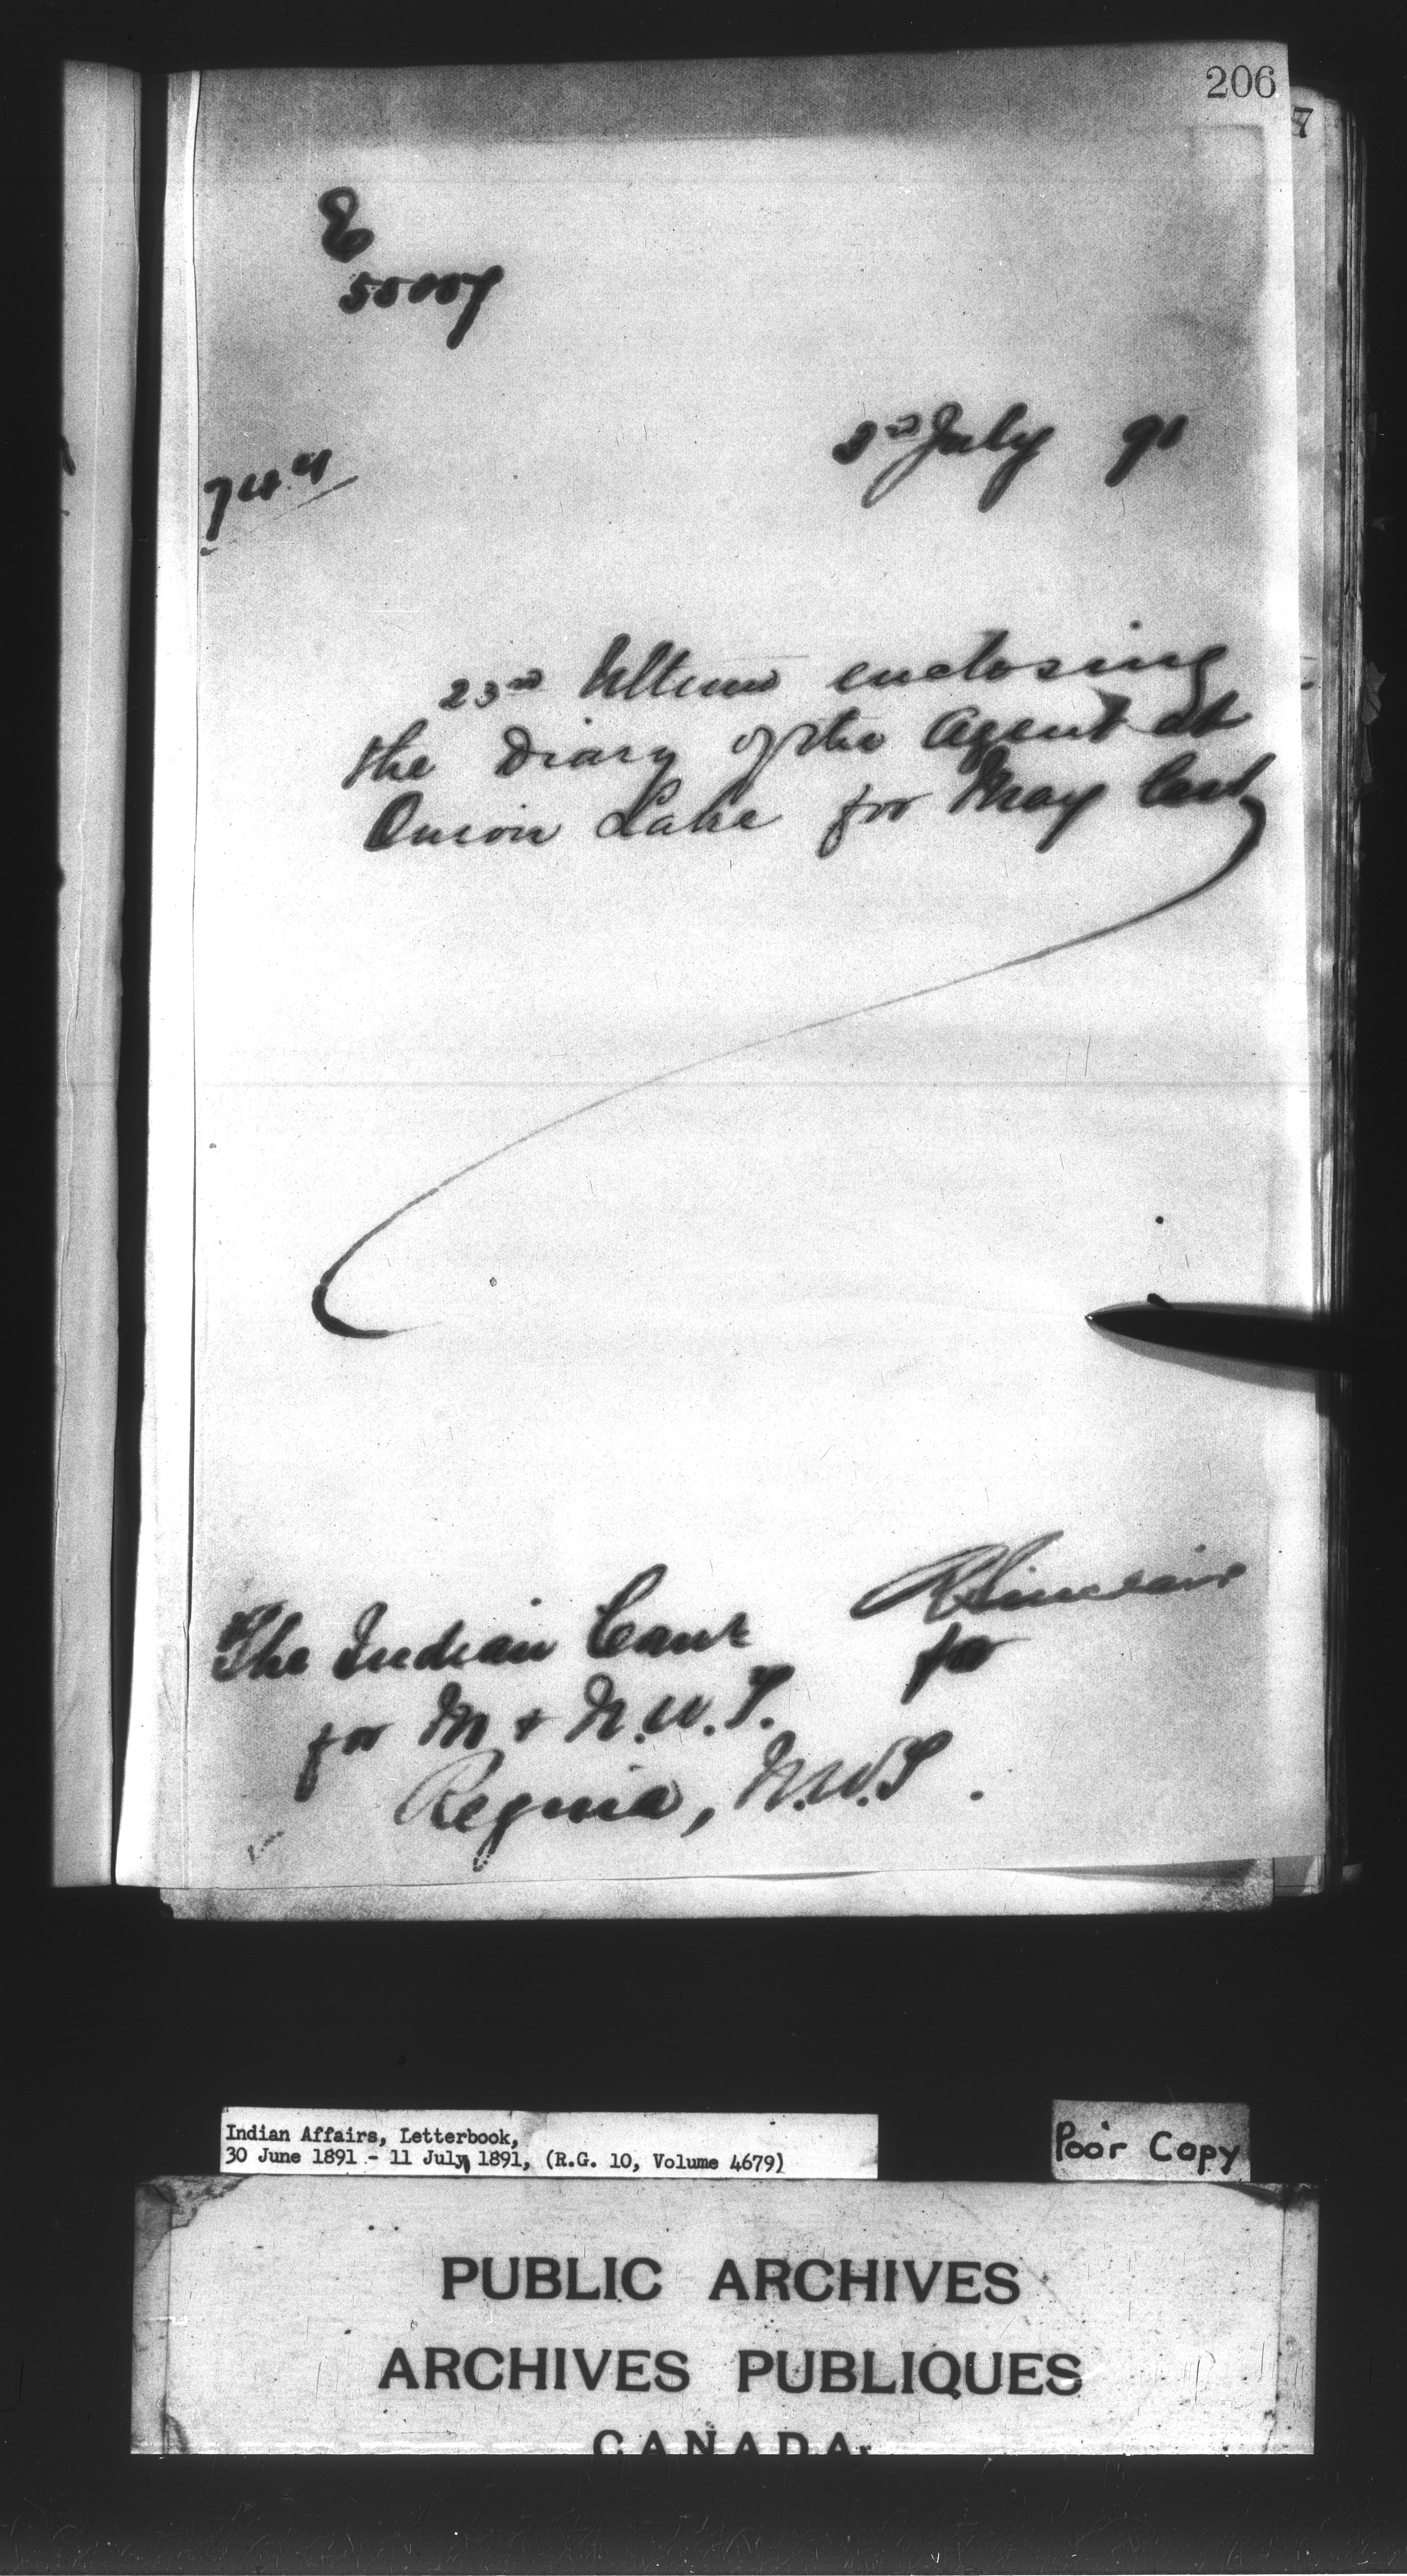 206
7
E
55007
2nd July 91
23rd Ultimo enclosing
the Diary of the Agent at
Onion Lake for May last
RSinclair
for
The Indian Comr
for M & N.W.T.
Regina, N.W.T.
Indian Affairs, Letterbook,
30 June 1891 - 11 July 1891, (R.G. 10, Volume 4679)
Poor Copy
PUBLIC ARCHIVES
ARCHIVES PUBLIQUES
CANADA